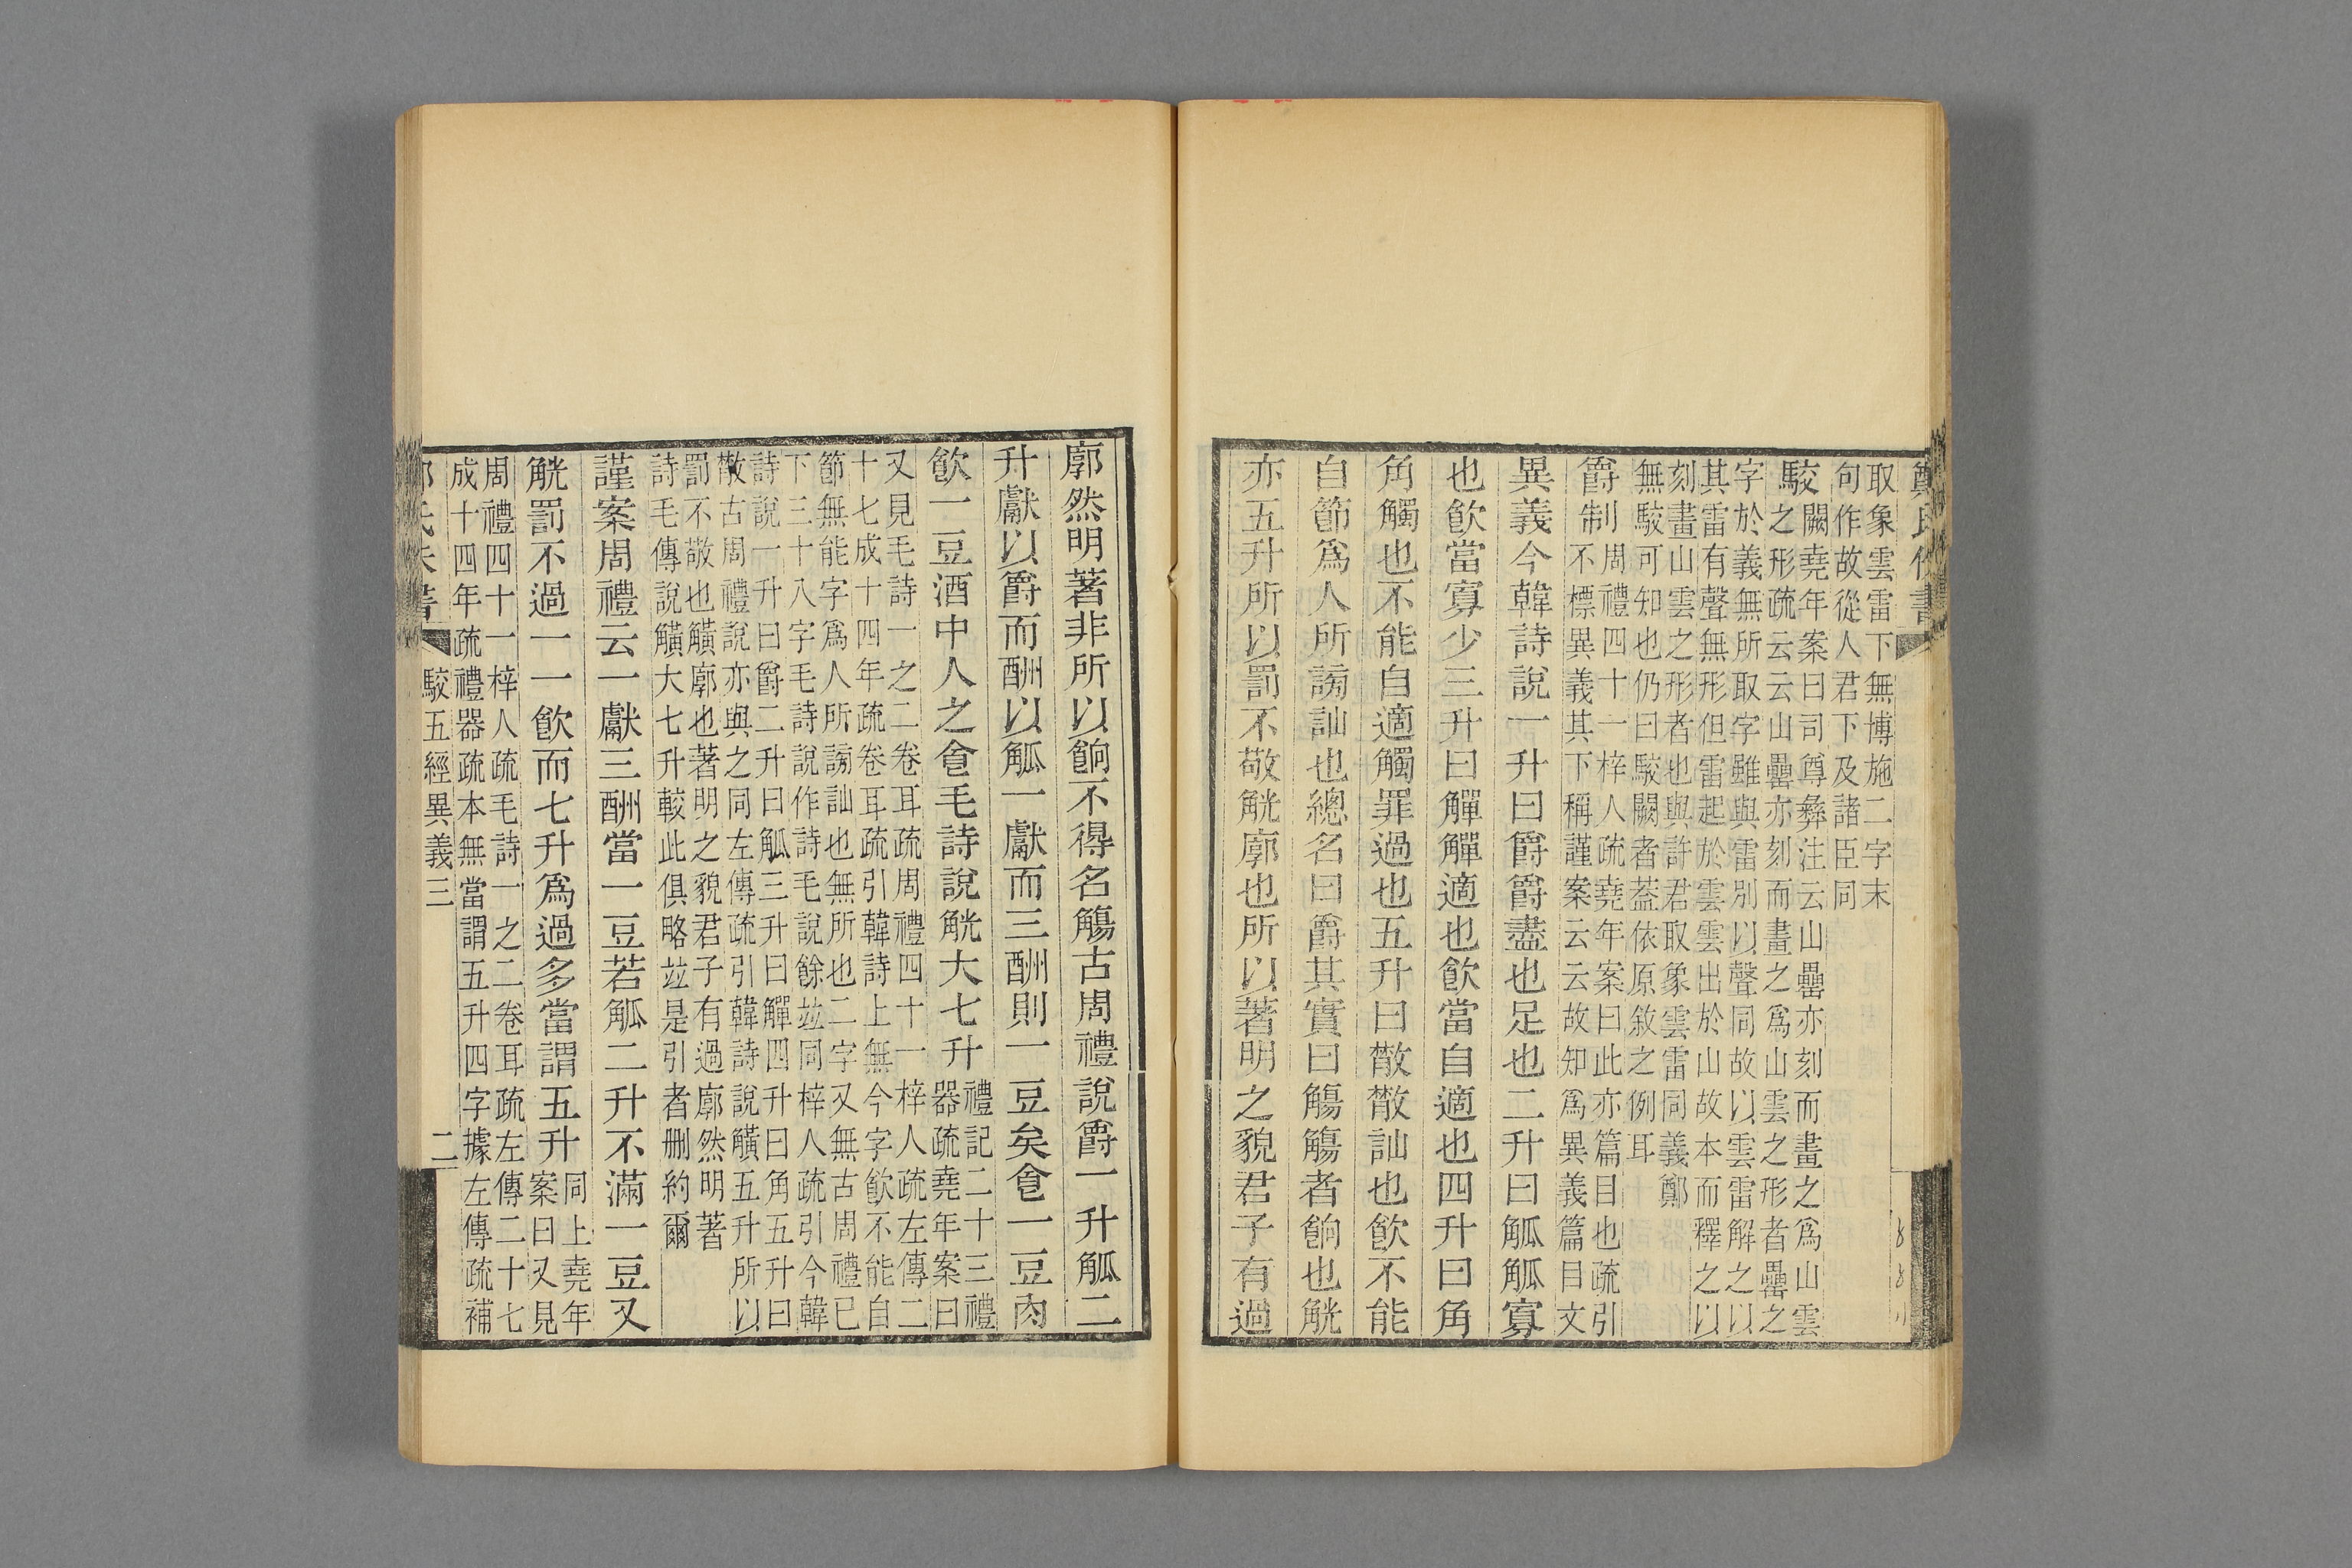 取象雲雷下無博施二字末
句作故從人君下及諸臣同
駮闕堯年案曰司尊彝注云山罍亦刻而畫之爲山雲
之形疏云云山罍亦刻而畫之爲山雲之形者罍之
字於義無所取字雖與雷別以聲同故以雲雷解之以
其雷有聲無形但雷起於雲雲出於山故本而釋之以
刻畫山雲之形者也與許君取象雲雷同義鄭
無駮可知也仍曰駮闕者葢依原敘之例耳
爵制周禮四十一梓人疏堯年案曰此亦篇目也疏引
不標異義其下稱謹案云云故知爲異義篇目文
異義今韓詩說一升曰爵爵盡也足也二升曰觚觚寡
也飮當寡少三升曰觶觶適也飮當自適也四升曰角
角觸也不能自適觸罪過也五升曰散散訕也飮不能
自節爲人所謗訕也總名曰爵其實曰觴觴者餉也觥
亦五升所以罰不敬觥廓也所以著明之貌君子有過
廓然明著非所以餉不得名觴古周禮說爵一升觚二
升獻以爵而酬以觚一獻而三酬則一豆矣食一豆肉
飮一豆酒中人之食毛詩說觥大七升禮記二十三禮
器疏堯年案曰
又見毛詩一之二卷耳疏周禮四十一梓人疏左傳二
十七成十四年疏卷耳疏引韓詩上無今字飮不能自
節無能字爲人所謗訕也無所也二字又無古周禮已
下三十八字毛詩說作詩毛說餘竝同梓人疏引今韓
詩說一升曰爵二升曰觚三升曰觶四升曰角五升曰
散古周禮說亦與之同左傳疏引韓詩說觵五升所以
罰不敬也觵廓也著明之貌君子有過廓然明著
詩毛傳說觵大七升較此俱略竝是引者刪約爾
謹案周禮云一獻三酬當一豆若觚二升不滿一豆又
觥罰不過一一飮而七升爲過多當謂五升同上堯年
案曰又見
周禮四十一梓人疏毛詩一之二卷耳疏左傳二十七
成十四年疏禮器疏本無當謂五升四字據左傳疏補
駮五經異義三 二